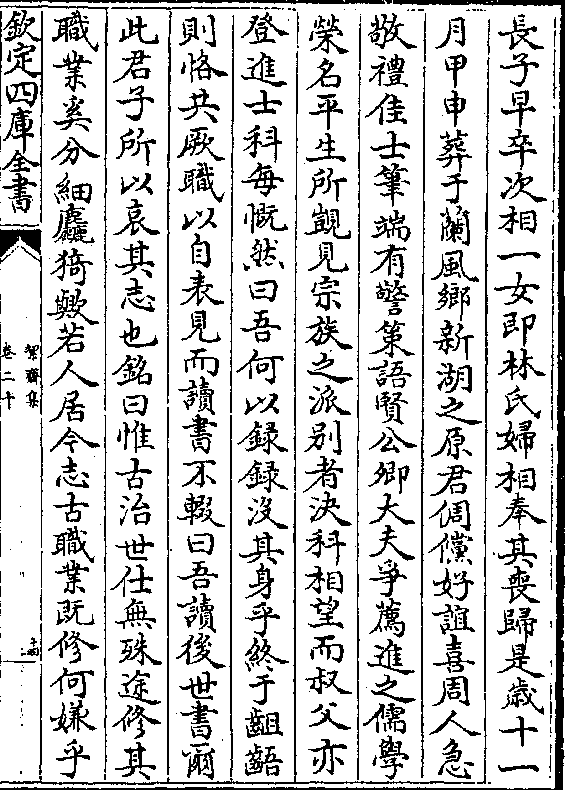 長子早卒次相一女即林氏婦相奉其喪歸是歲十一
月甲申葬于蘭風鄉新湖之原君倜儻好誼喜周人急
敬禮佳士筆端有警策語賢公卿大夫爭薦進之儒學
榮名平生所覬見宗族之派别者決科相望而叔父亦
登進士科每慨然曰吾何以録録沒其身乎終于齟齬
則恪共厥職以自表見而讀書不輟曰吾讀後世書爾
此君子所以哀其志也銘曰惟古治世仕無殊途修其
職業奚分細麤猗歟若人居今志古職業既修何嫌乎
欽定四庫全書
絜齋集
卷二十
十四